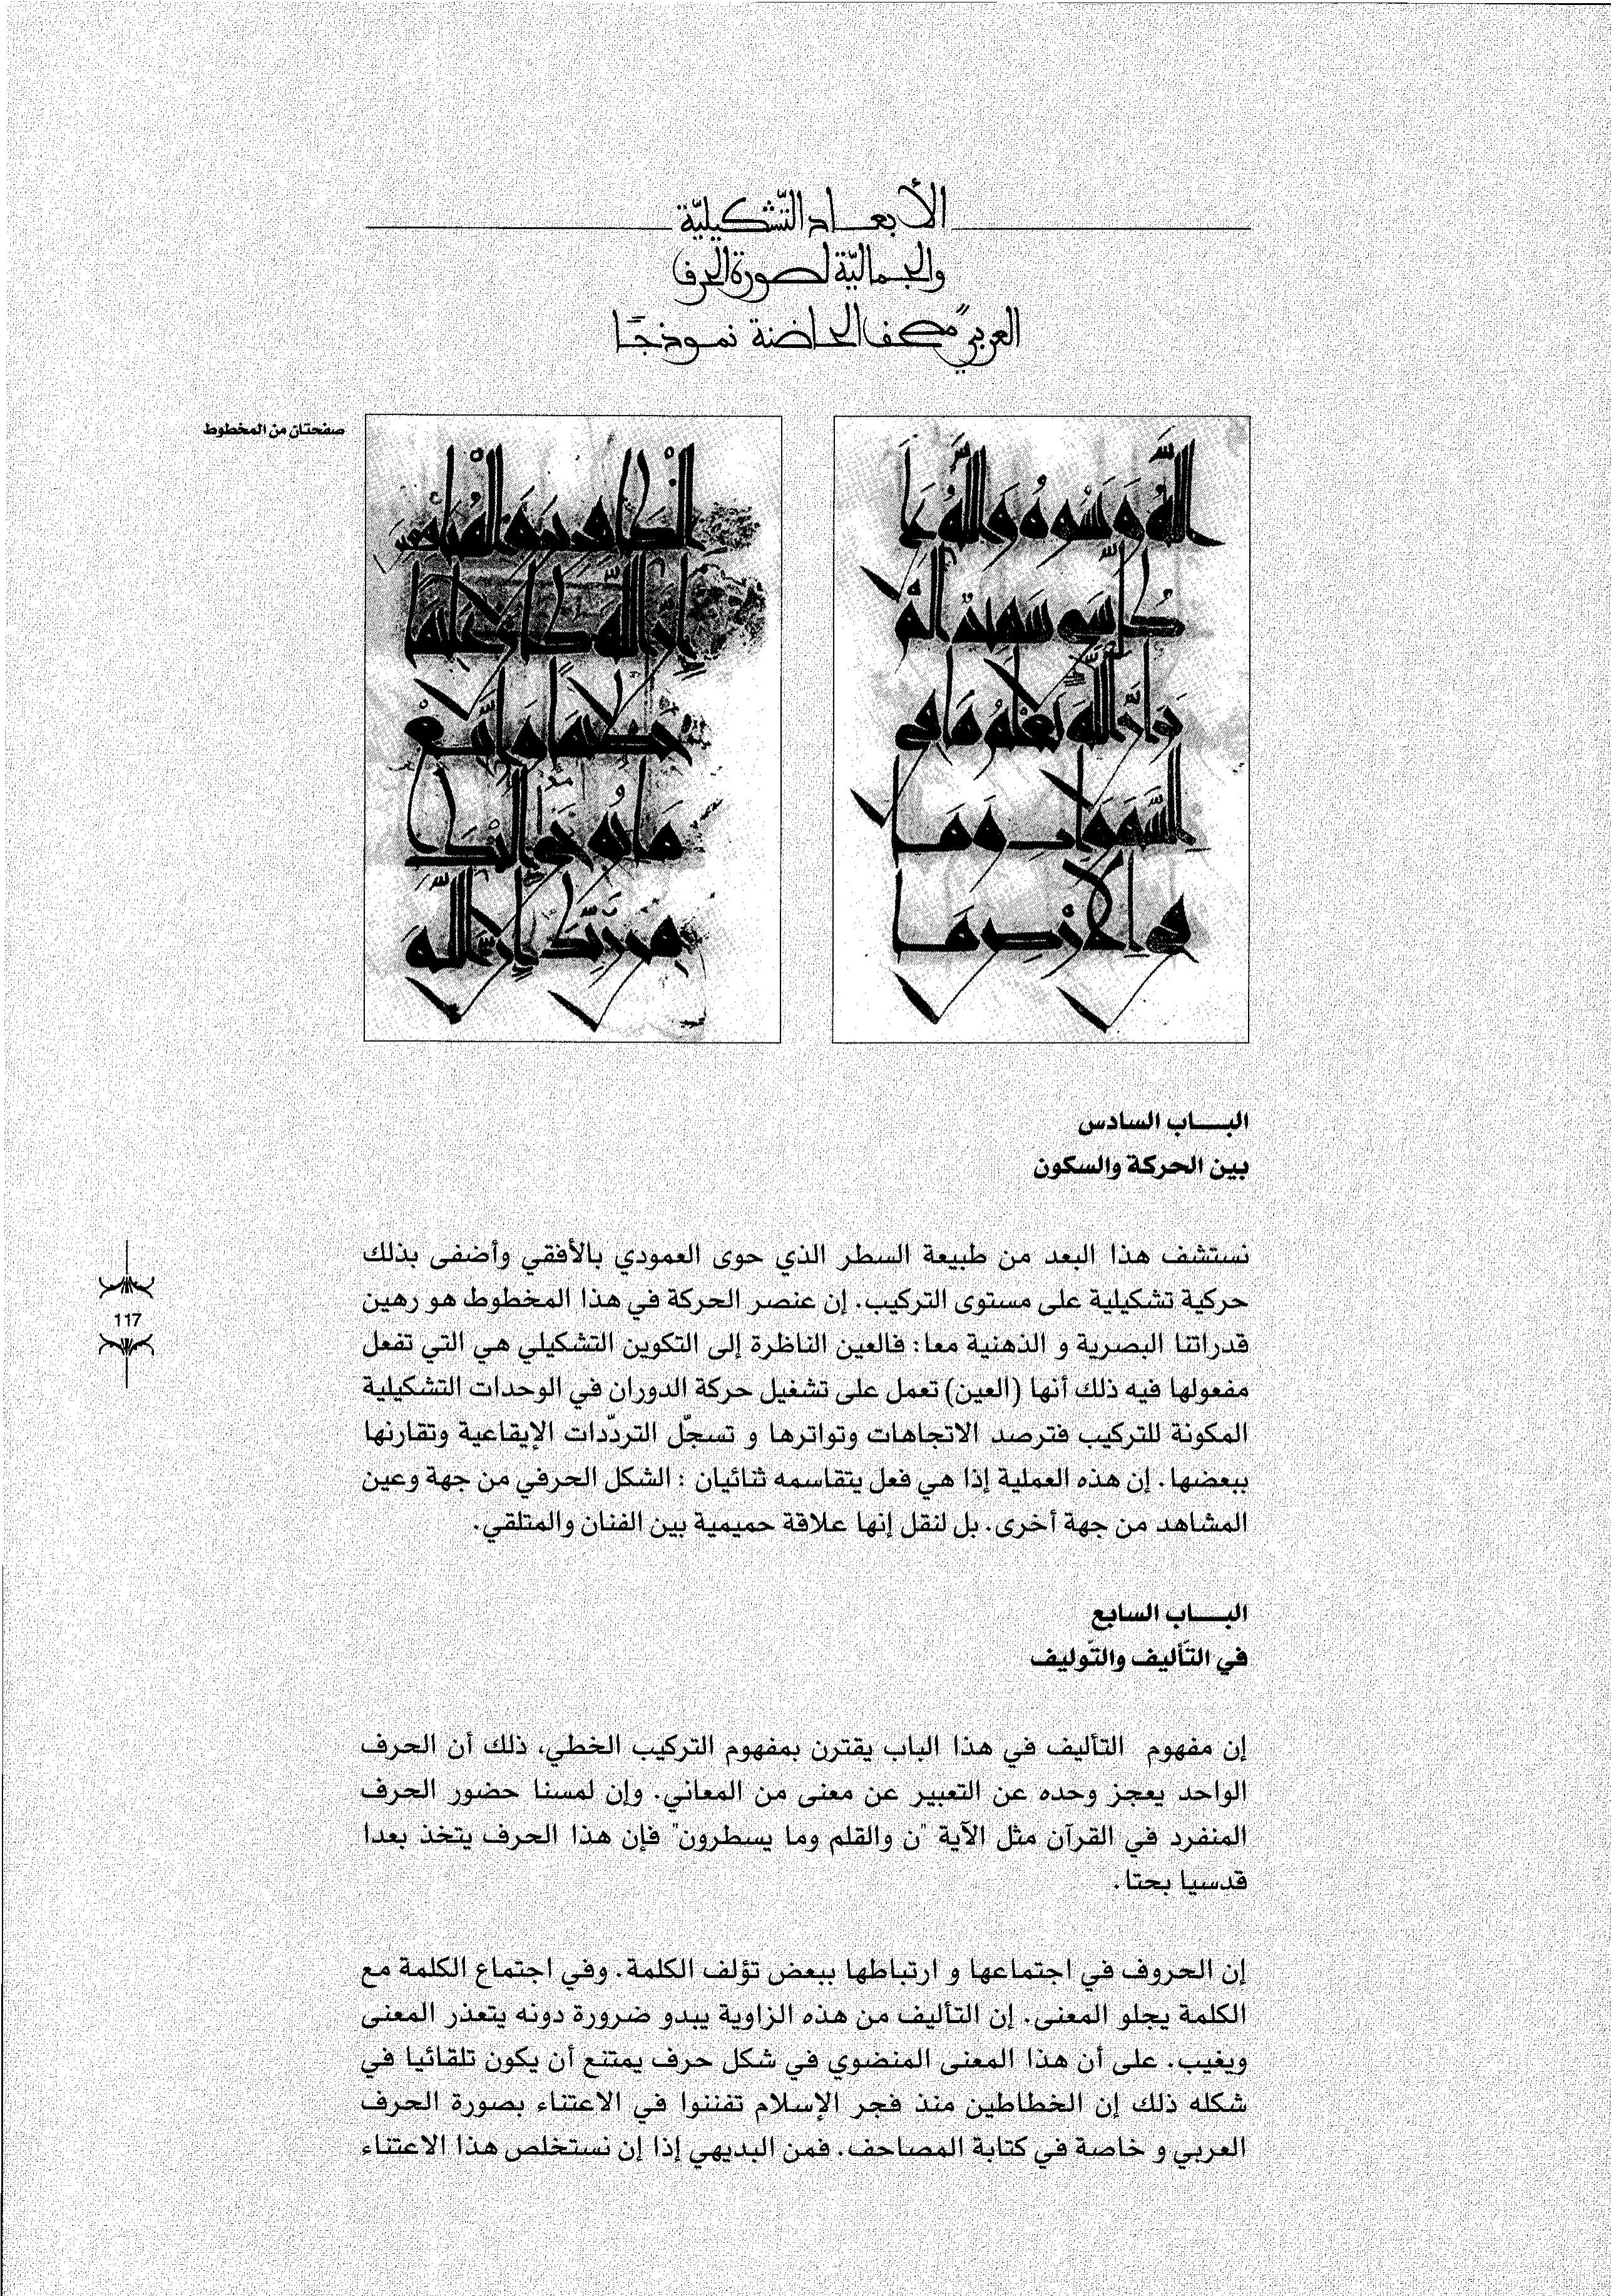 الأبعاد التّشكيليّة
والجماليّة لصورة الحرف
العربيّ مصحف الحاضنة نموذجًا
صفحتان من المخطوط
اللَّهُ وَنَسُوهُ وَاللَّهُ عَلَى
كُلِّ شَيْءٍ شَهِيدٌ أَلَمْ
تَرَ أَنَّ اللَّهَ يَعْلَمُ مَا فِي
السَّمَوَاتِ وَمَا
فِي الْأَرْضِ مَا
الْكَافِرِينَ وَالْمُنَافِقِينَ
إِنَّ اللَّهَ كَانَ عَلِيمًا
حَكِيمًا وَاتَّبِعْ
مَا يُوحَى إِلَيْكَ
مِنْ رَبِّكَ إِنَّ اللَّهَ
البـــاب السادس
بين الحركة والسكون
نستشف هذا البعد من طبيعة السطر الذي حوى العمودي بالأفقي وأضفى بذلك
حركية تشكيلية على مستوى التركيب. إن عنصر الحركة في هذا المخطوط هو رهين
قدراتنا البصرية و الذهنية معا: فالعين الناظرة إلى التكوين التشكيلي هي التي تفعل
مفعولها فيه ذلك أنها (العين) تعمل على تشغيل حركة الدوران في الوحدات التشكيلية
المكونة للتركيب فترصد الاتجاهات وتواترها و تسجّل التردّدات الإيقاعية وتقارنها
ببعضها. إن هذه العملية إذا هي فعل يتقاسمه ثنائيان : الشكل الحرفي من جهة وعين
المشاهد من جهة أخرى. بل لنقل إنها علاقة حميمية بين الفنان والمتلقي.
117
البـــاب السابع
في التّأليف والتّوليف
إن مفهوم التأليف في هذا الباب يقترن بمفهوم التركيب الخطي، ذلك أن الحرف
الواحد يعجز وحده عن التعبير عن معنى من المعاني. وإن لمسنا حضور الحرف
المنفرد في القرآن مثل الآية "ن والقلم وما يسطرون" فإن هذا الحرف يتخذ بعدا
قدسيا بحتا.
إن الحروف في اجتماعها و ارتباطها ببعض تؤلف الكلمة. وفي اجتماع الكلمة مع
الكلمة يجلو المعنى. إن التأليف من هذه الزاوية يبدو ضرورة دونه يتعذر المعنى
ويغيب. على أن هذا المعنى المنضوي في شكل حرف يمتنع أن يكون تلقائيا في
شكله ذلك إن الخطاطين منذ فجر الإسلام تفننوا في الاعتناء بصورة الحرف
العربي و خاصة في كتابة المصاحف. فمن البديهي إذا إن نستخلص هذا الاعتناء